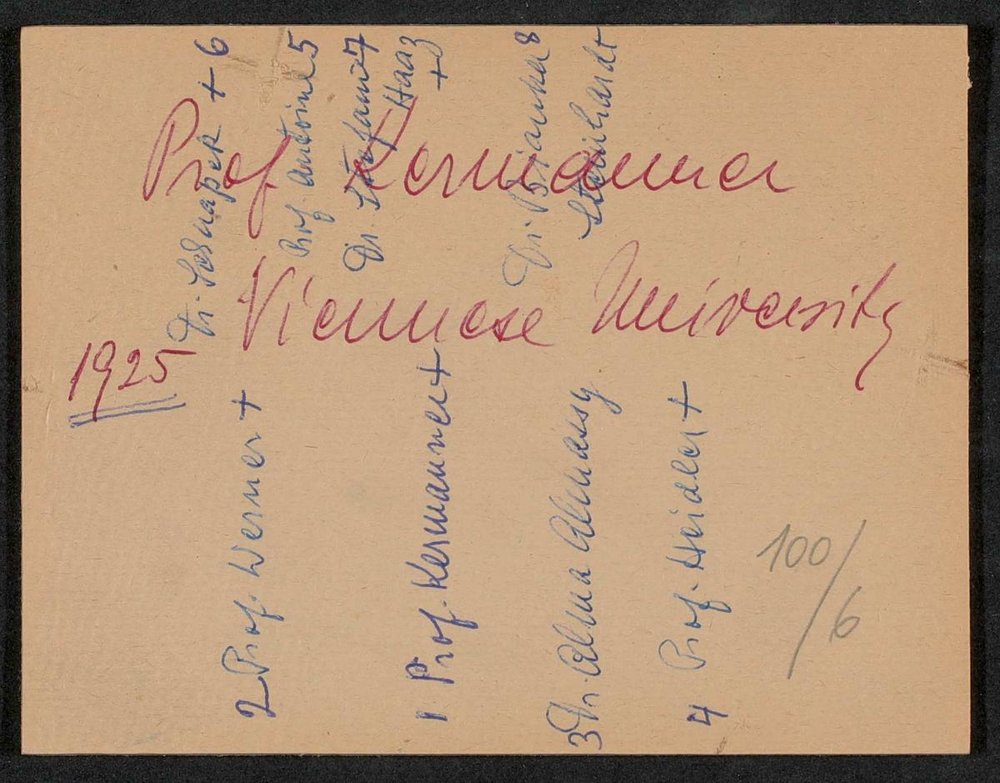 Prof Kermauner
Viennese University
1925
2 Prof. Werner +
1 Prof. Kermauner +
3 Dr. Alma
4 Prof. Heidler +
Dr. + 6
Prof. Antoine 5
Dr. 7
Haas +
Dr. Bianka 8
Steinhardt
100/6